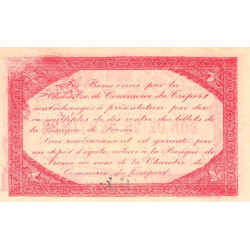 Bons émis par la
Chambre de Commerce du Tréport
sont échangés à présentation par dix
ou multiples de dix contre des billets de
la Banque de France.
Leur remboursement est garanti par
un dépôt d'égale valeur à la Banque de
France au nom de la Chambre de
Commerce du Tréport.